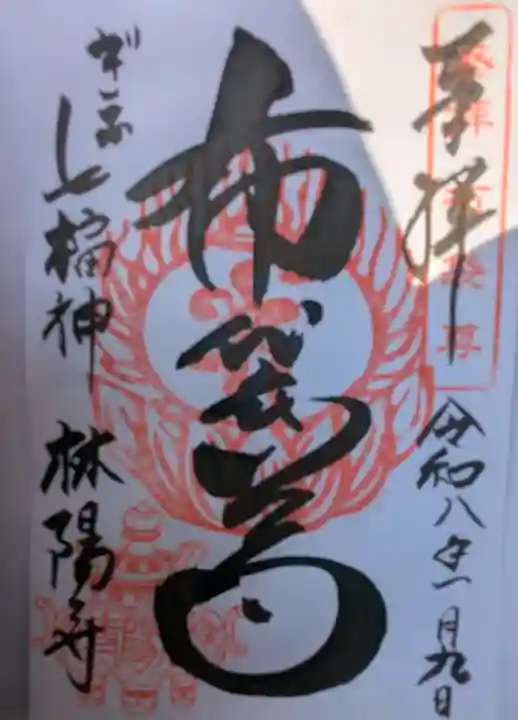 奉拝
奉拝 布袋尊
令和八年一月九日
布袋尊
ぎふ七福神 林陽寺